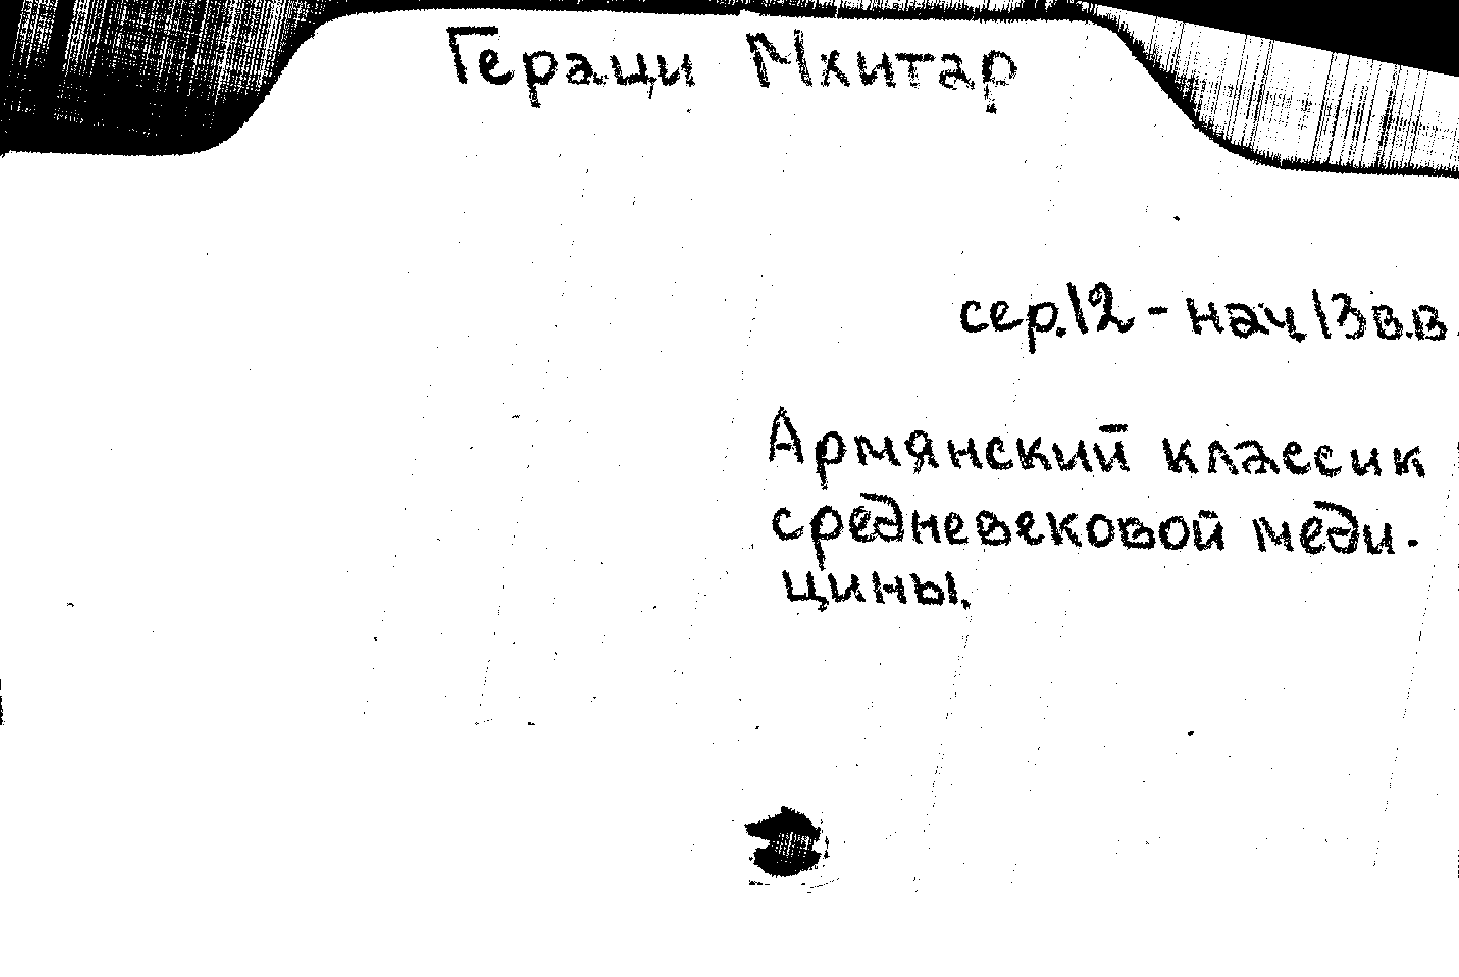 Гераци Мхитар
сер.12 - нач.13 в.в.
Армянский классик
средневековой меди-
цины.